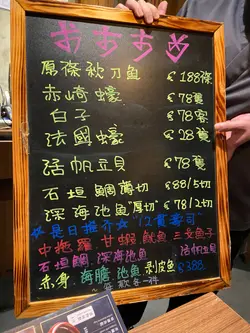 おすすめ
原條秋刀魚 $188條
赤崎蠔 $78隻
白子 $78客
法國蠔 $28隻
活帆立貝 $78隻
石垣鯛薄切 $88/5切
深海池魚"厚切" $78/2切
☆是日推介☆"12貫壽司"
中拖羅 甘蝦 魷魚 三文魚子
石垣鯛 深海池魚 活帆立貝
赤身 海膽 池魚 剥皮魚 $388